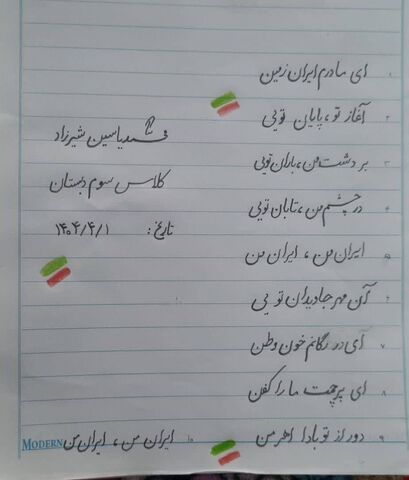 ۱ ای مادرم ایران زمین
۲ آغاز تو، پایان تویی
۳ بر دشت من، باران تویی
۴ در چشم من، تابان تویی
۵ ایران من، ایران من
۶ آن مهر جاویدان تویی
۷ آی در رگانم خون وطن
۸ ای پرچمت ما را کفن
۹ دور از تو بادا اهرمن
۱۰ ایران من، ایران من
محمد یاسین شیرزاد
کلاس سوم دبستان
تاریخ: ۱۴۰۴/۴/۱
MODERN